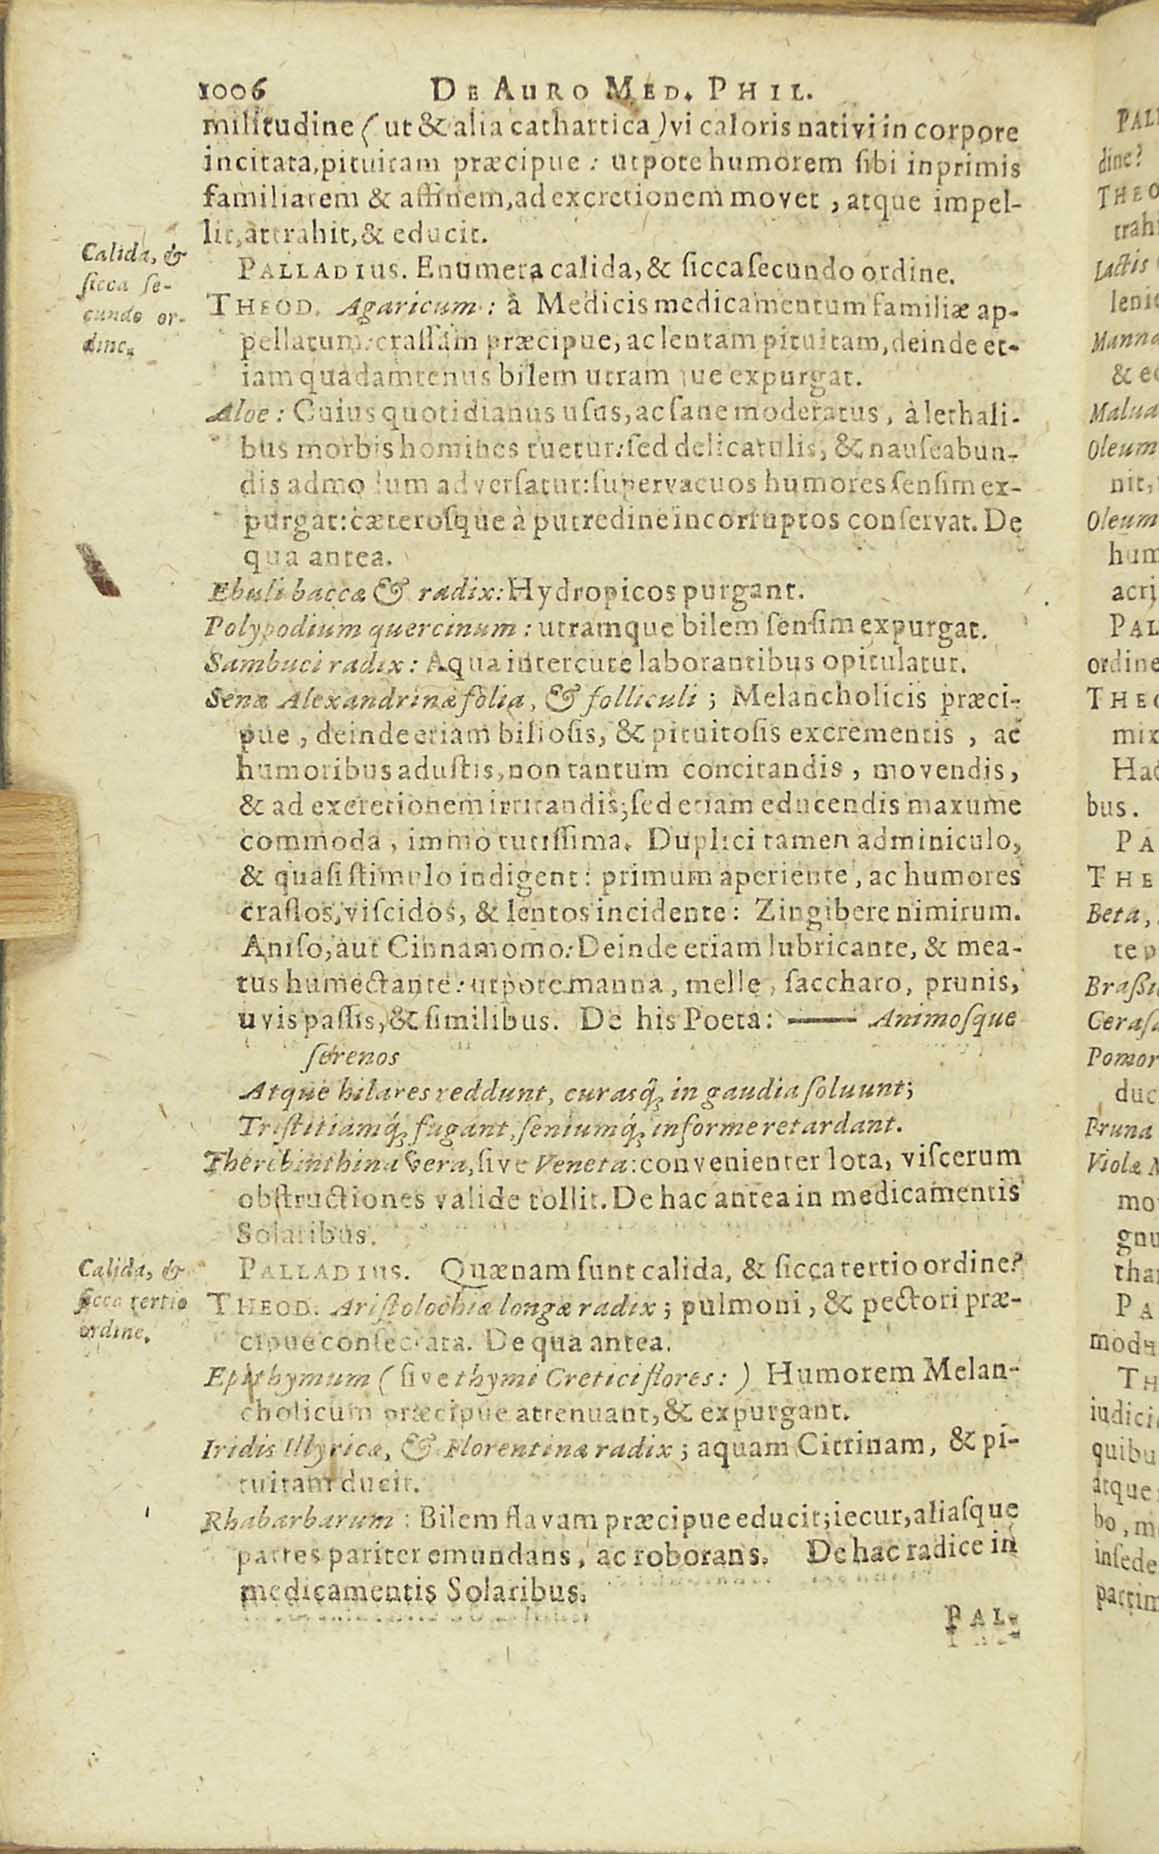 1006 DE AURO MED. PHIL.
militudine (ut & alia cathartica) vi caloris nativi in corpore
incitata, pituitam præcipue: utpote humorem sibi inprimis
familiarem & affinem, ad excretionem movet, atque impel-
lit, attrahit, & educit.
Calida, &
sicca se-
cundo or-
dine.
PALLADIUS. Enumera calida, & sicca secundo ordine.
THEOD. Agaricum: à Medicis medicamentum familiæ ap-
pellatum: crassam præcipue, ac lentam pituitam, deinde et-
iam quadamtenus bilem utramque expurgat.
Aloe: Cuius quotidianus usus, ac sane moderatus, à lethali-
bus morbis homines tuetur: sed delicatulis, & nauseabun-
dis admodum adversatur: supervacuos humores sensim ex-
purgat: cæterosque à putredine incorruptos conservat. De
qua antea.
Ebuli baccæ & radix: Hydropicos purgant.
Polypodium quercinum: utramque bilem sensim expurgat.
Sambuci radix: Aqua intercute laborantibus opitulatur.
Senæ Alexandrinæ folia, & folliculi; Melancholicis præci-
pue, deinde etiam biliosis, & pituitosis excrementis, ac
humoribus adustis, non tantum concitandis, movendis,
& ad excretionem irritandis; sed etiam educendis maxume
commoda, immo tutissima. Duplici tamen adminiculo,
& quasi stimulo indigent: primum aperiente, ac humores
crassos, viscidos, & lentos incidente: Zingibere nimirum.
Aniso, aut Cinnamomo: Deinde etiam lubricante, & mea-
tus humectante: utpote manna, melle, saccharo, prunis,
uvis passis, & similibus. De his Poeta: —— Animosque
serenos
Atque hilares reddunt, curasq; in gaudia soluunt;
Tristitiamq́; fugant, seniumq́; informe retardant.
Therebinthina vera, sive Veneta: convenienter lota, viscerum
obstructiones valide tollit. De hac antea in medicamentis
Solaribus.
Calida, &
sicca tertio
ordine.
PALLADIUS. Quænam sunt calida, & sicca tertio ordine?
THEOD. Aristolochiæ longæ radix; pulmoni, & pectori præ-
cipue consecrata. De qua antea.
Epithymum (sive thymi Cretici flores:) Humorem Melan-
cholicum præcipue attenuant, & expurgant.
Iridis Illyricæ, & Florentinæ radix; aquam Citrinam, & pi-
tuitam ducit.
Rhabarbarum: Bilem flavam præcipue educit; iecur, aliasque
partes pariter emundans, ac roborans. De hac radice in
medicamentis Solaribus.
PAL-
PALL
dine?
THEO
trahi
Lactis
lenie
Manna
& ed
Malua
Oleum
nit,
Oleum
hum
acri
PAL
ordine
THEO
mix
Hac
bus.
PA
THE
Beta,
te p
Braßi
Ceraſa
Pomor
duc
Pruna
Violæ M
mo
gnu
than
PA
modu
TH
iudici
quibu
atque
bo, m
insede
partim